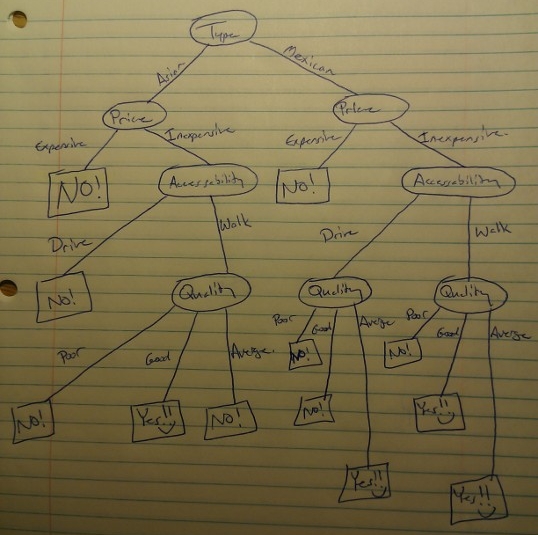 Type
Asian
Mexican
Price
Price
Expensive
Inexpensive
Expensive
Inexpensive.
NO!
Accessability
NO!
Accessability
Drive
Walk
Drive
Walk
NO!
Quality
Quality
Quality
Poor
Good
Averge.
Poor
Good
Averge
Poor
Good
Averge
NO!
NO!
NO!
Yes!!
NO!
NO!
Yes!!
Yes!!
Yes!!